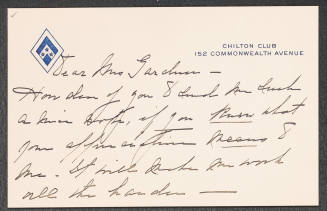 CHILTON CLUB
152 COMMONWEALTH AVENUE
Dear Mrs Gardner —
How dear of you to send me such
a nice note, if you knew what
your appreciation means to
me. It will make me work
all the harder —